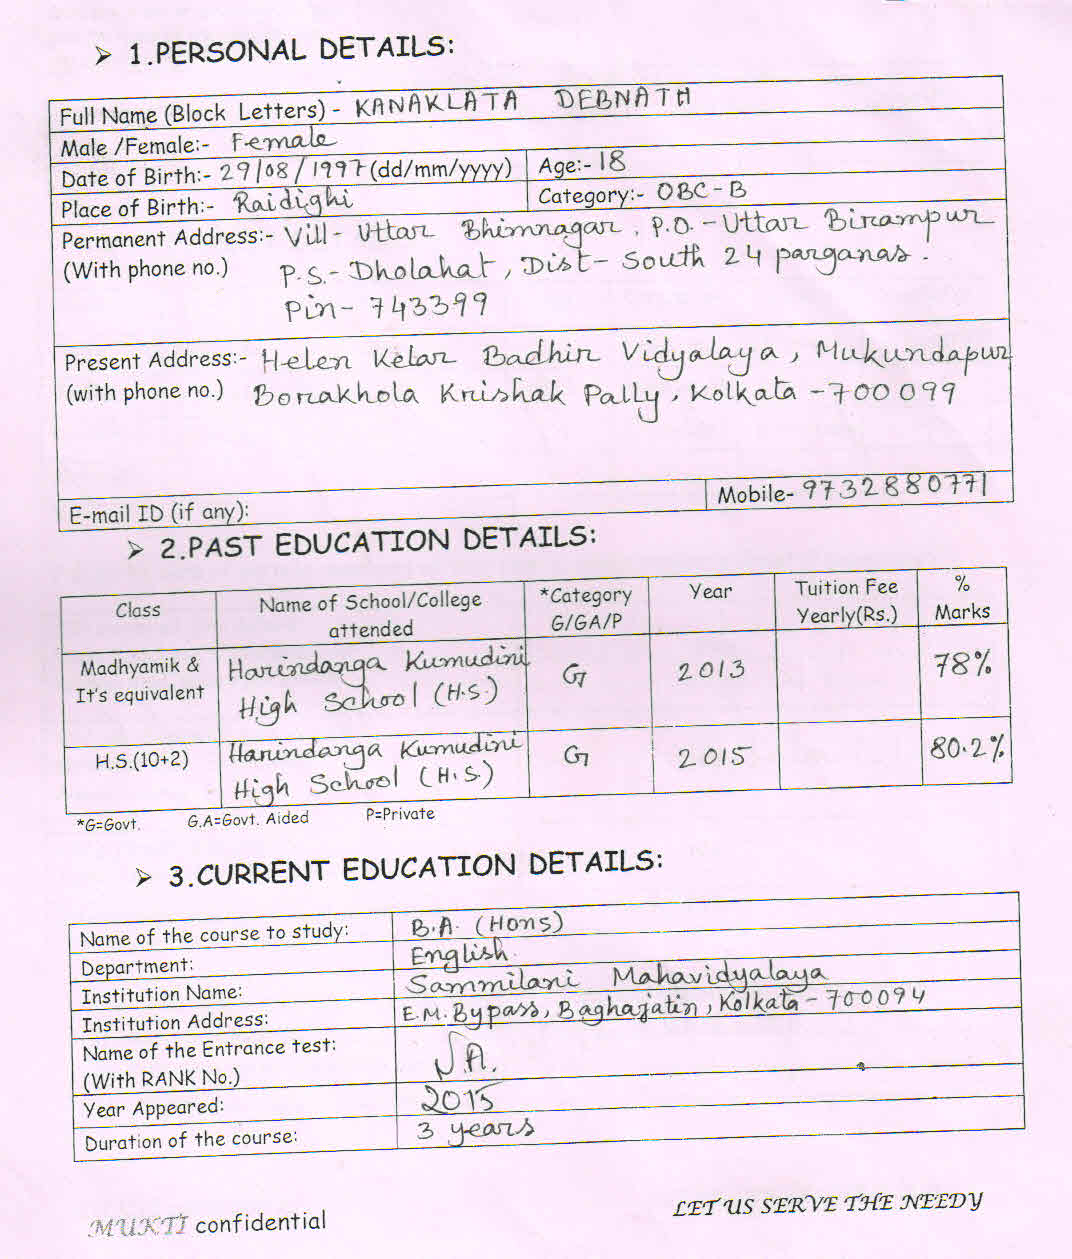 ➢ 1.PERSONAL DETAILS:
Full Name (Block Letters) - KANAKLATA DEBNATH
Male /Female:- Female
Date of Birth:- 29/08/1997 (dd/mm/yyyy) Age:- 18
Place of Birth:- Raidighi Category:- OBC-B
Permanent Address:- Vill- Uttar Bhimnagar, P.O.- Uttar Birampur
(With phone no.) P.S.- Dholahat, Dist- South 24 parganas.
Pin- 743399
Present Address:- Helen Kelar Badhir Vidyalaya, Mukundapur
(with phone no.) Borakhola Krishak Pally, Kolkata - 700099
E-mail ID (if any): Mobile- 9732880771
➢ 2.PAST EDUCATION DETAILS:
Class Name of School/College attended *Category G/GA/P Year Tuition Fee Yearly(Rs.) % Marks
Madhyamik & It's equivalent Harindanga Kumudini High School (H.S.) G 2013 78%
H.S.(10+2) Harindanga Kumudini High School (H.S.) G 2015 80.2%
*G=Govt. G.A=Govt. Aided P=Private
➢ 3.CURRENT EDUCATION DETAILS:
Name of the course to study: B.A. (Hons)
Department: English.
Institution Name: Sammilani Mahavidyalaya
Institution Address: E.M. Bypass, Baghajatin, Kolkata - 700094
Name of the Entrance test:
(With RANK No.) N.A.
Year Appeared: 2015
Duration of the course: 3 years
MUKTI confidential LET US SERVE THE NEEDY